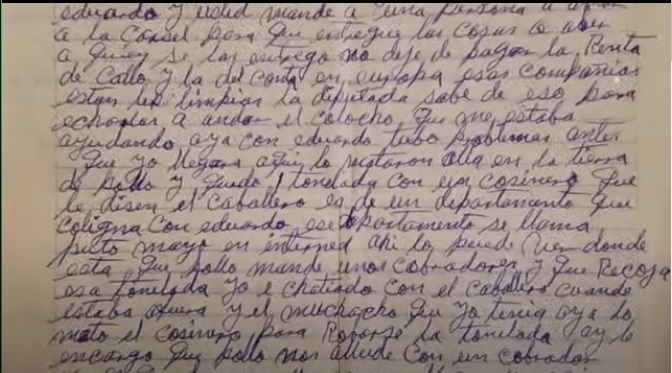 eduardo y usted mande a una persona a
a la Carsel para que entregue las cosas
a quien se las entrego no deje de pagar la Renta
de Callo y la del Conta en europa esas compañias
estan la diputada sabe de eso para
echarlas a andar el colocho que me estaba
ayudando aya con eduardo tubo problemas antes
que yo llegara aqui lo mataron alla en la tierra
de pollo y quedo 1 tonelada con un cosinero que
le disen el caballero es de un departamento que
coligna con eduardo ese departamento se llama
puto mayo en interned ahi lo puede Ver donde
esta que pollo mande unos cobradores y que Recoja
esa tonelada yo e chatiado con el caballero cuando
estaba afuera y el muchacho que yo tenia aya lo
mato el cosinero para Robarse la tonelada ay le
encargo que pollo nos allude con un cobrador